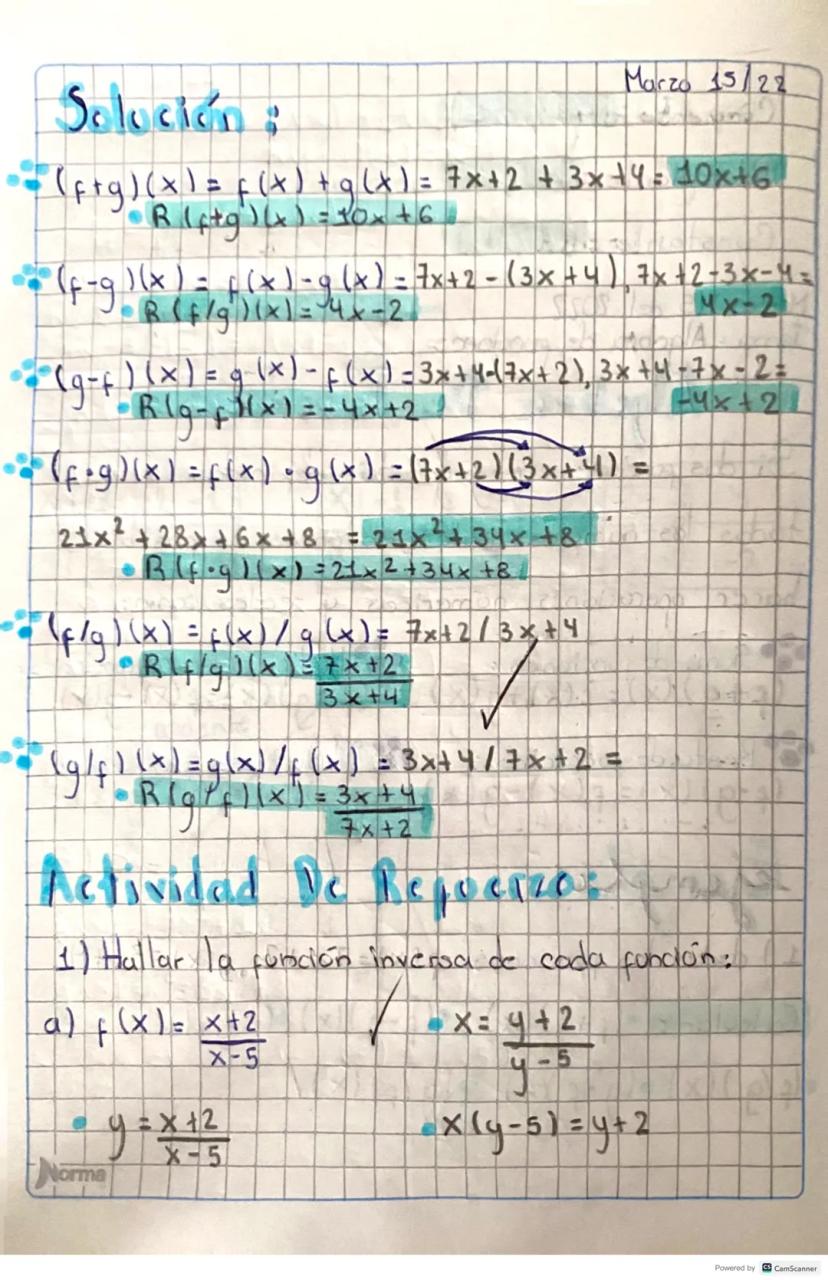 Marzo 15/22
Solución:
(f+g)(x) = f(x) + g(x) = 7x+2 + 3x+4 = 10x+6
R(f+g)(x) = 10x+6
(f-g)(x) = f(x) - g(x) = 7x+2 - (3x+4), 7x+2-3x-4 =
R(f/g)(x) = 4x-2 4x-2
(g-f)(x) = g(x) - f(x) = 3x+4-(7x+2), 3x+4-7x-2 =
R(g-f)(x) = -4x+2 -4x+2
(f•g)(x) = f(x) • g(x) = (7x+2)(3x+4) =
21x² + 28x + 6x + 8 = 21x² + 34x + 8
R(f•g)(x) = 21x² + 34x + 8
(f/g)(x) = f(x) / g(x) = 7x+2 / 3x+4
R(f/g)(x) = 7x+2
3x+4
(g/f)(x) = g(x) / f(x) = 3x+4 / 7x+2 =
R(g/f)(x) = 3x+4
7x+2
Actividad De Refuerzo:
1) Hallar la función inversa de cada función:
a) f(x) = x+2 / x-5
x = y+2 / y-5
y = x+2 / x-5
x(y-5) = y+2
Norma
Powered by CS CamScanner